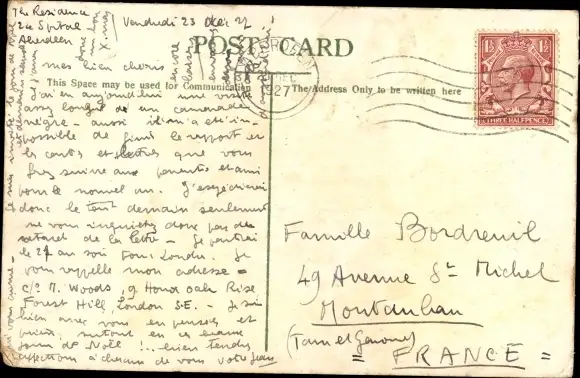 The Residence
24 Spital
Aberdeen
Vendredi 23 Déc 27
POST CARD
This Space may be used for Communication
The Address Only to be written here
DEC
27
1½ 1½
THREE HALFPENCE
mes bien chéris
J'ai eu aujourd'hui une visite
assez longue de un camarade
nègre - aussi il m'a été im-
possible de finir le rapport et
les cartes et lettres que vous
ferez suivre aux parents et amis
pour le nouvel an. J'
donc le tout demain seulement
ne vous inquiétez donc pas du
retard de la lettre - Je partirai
le 27 au soir pour Londres. Je
vous rappelle mon adresse =
c/o M. Woods, 9 Honor Oak Rise
Forest Hill, London S.E. - Je suis
bien avec vous en pensées et
prières, surtout en ce beau
jour de Noël !.. bien tendres
affections à chacun de vous votre Jean
Famille Bordreuil
49 Avenue St Michel
Montauban
(Tarn et Garonne)
= FRANCE =